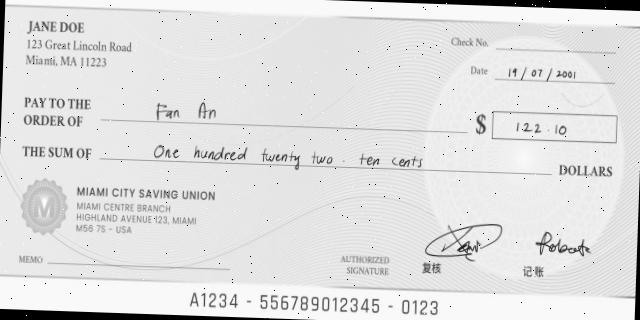 JANE DOE
123 Great Lincoln Road
Mianti, MA J1223
Check No.
Date 19/07/2001
PAY TO THE
ORDER OF Fan An
$ 122.10
THE SUM OF One hundred twenty two . ten cents DOLLARS
M
MIAMI CITY SAVING UNION
MIAMI CENTRE BRANCH
HIGHLAND AVENUE 123, MIAMI
M56 7S - USA
MEMO
AUTHORIZED
SIGNATURE
复核
记·账
A1234 - 556789012345 - 0123